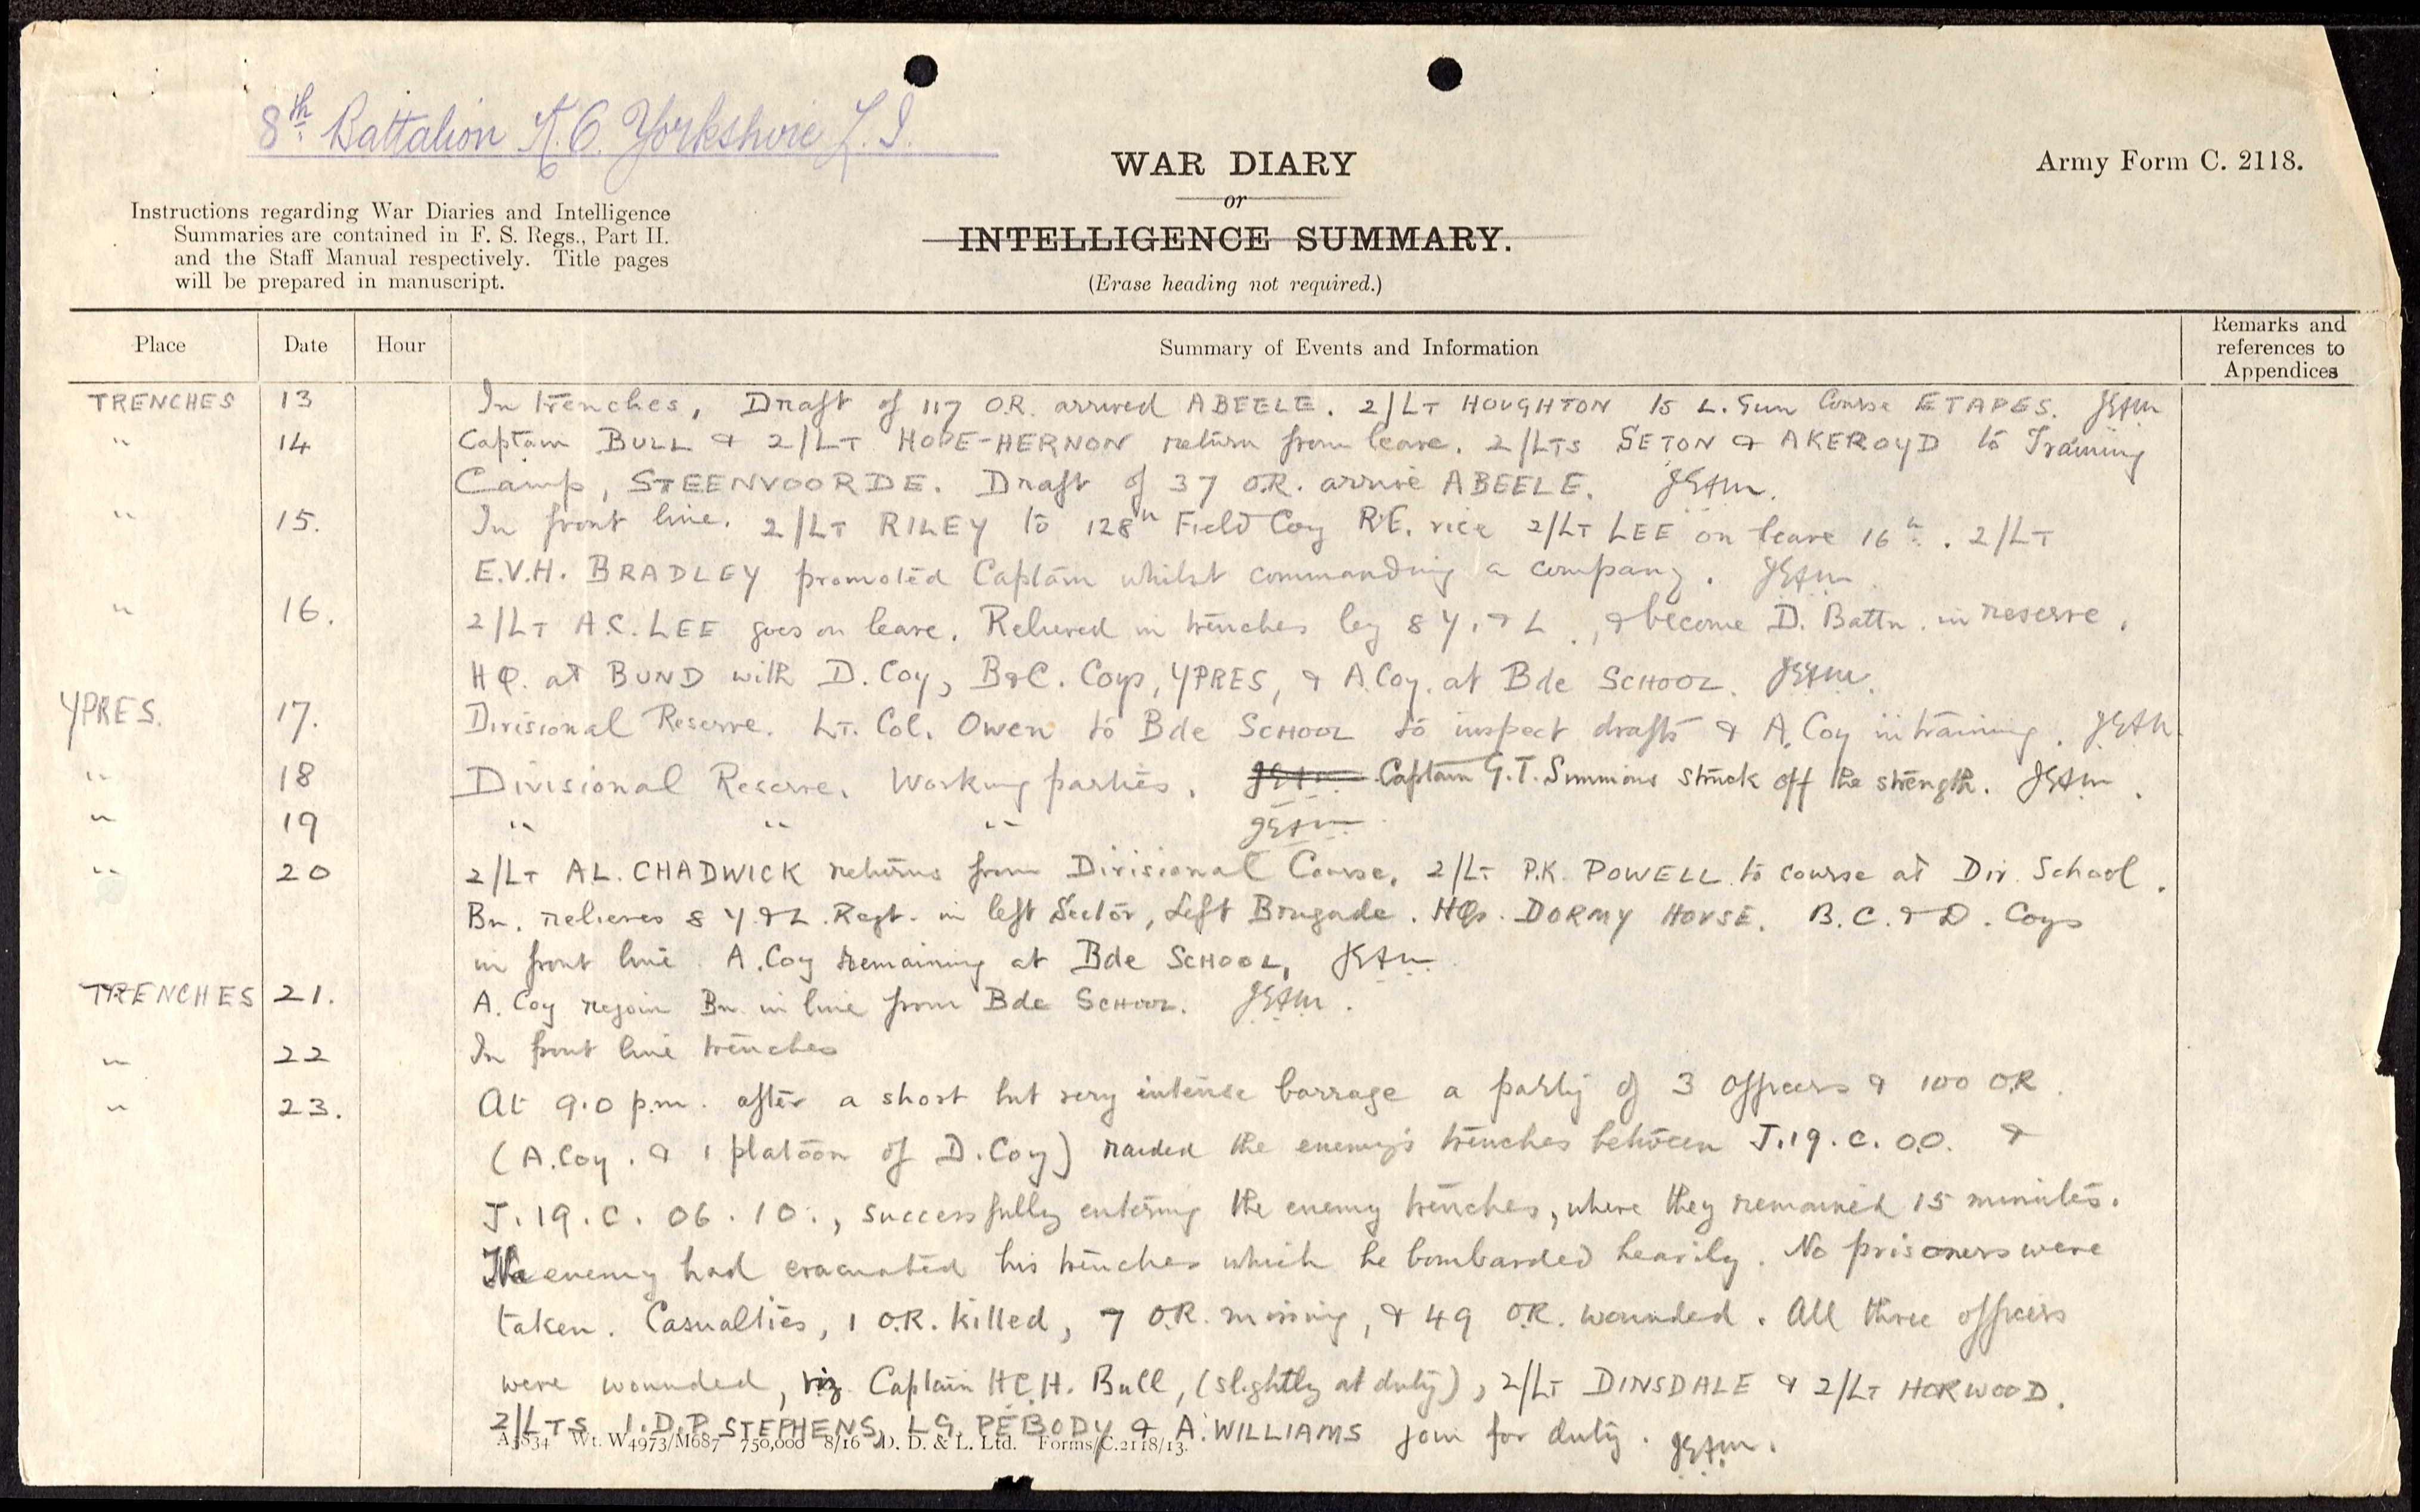 8th Battalion K.O. Yorkshire L.I.
WAR DIARY
or
INTELLIGENCE SUMMARY.
(Erase heading not required.)
Army Form C. 2118.
Instructions regarding War Diaries and Intelligence
Summaries are contained in F. S. Regs., Part II.
and the Staff Manual respectively. Title pages
will be prepared in manuscript.
Place Date Hour Summary of Events and Information Remarks and references to Appendices
TRENCHES 13 In trenches, Draft of 117 O.R. arrived ABEELE. 2/LT HOUGHTON to L. Gun Course ETAPES.
" 14 Captain BULL & 2/LT HOPE-HERNON return from leave. 2/LTS SETON & AKEROYD to Training
Camp, STEENVOORDE. Draft of 37 O.R. arrive ABEELE.
" 15. In front line. 2/LT RILEY to 128th Field Coy R.E. vice 2/LT LEE on leave 16th. 2/LT
E.V.H. BRADLEY promoted Captain whilst commanding a company.
" 16. 2/LT A.C. LEE goes on leave. Relieved in trenches by 8 Y. & L., & become D. Battn. in reserve.
HQ. at BUND with D. Coy, B&C. Coys, YPRES, & A. Coy. at Bde SCHOOL.
YPRES. 17. Divisional Reserve. LT. Col. Owen to Bde SCHOOL to inspect drafts & A. Coy in training.
" 18 Divisional Reserve. Working parties. Captain G.T. Simmons struck off the strength.
" 19 " " "
" 20 2/LT A.L. CHADWICK returns from Divisional Course. 2/LT P.K. POWELL to course at Div. School.
Bn. relieves 8 Y. & L. Regt. in left Sector, Left Brigade. HQs. DORMY HOUSE. B.C. & D. Coys
in front line. A. Coy remaining at Bde SCHOOL,
TRENCHES 21. A. Coy rejoin Bn in line from Bde SCHOOL.
" 22 In front line trenches
" 23. At 9.0 p.m. after a short but very intense barrage a party of 3 officers & 100 O.R.
(A. Coy. & 1 platoon of D. Coy) raided the enemy's trenches between J.19.c.0.0. &
J.19.c.06.10., successfully entering the enemy trenches, where they remained 15 minutes.
The enemy had evacuated his trenches which he bombarded heavily. No prisoners were
taken. Casualties, 1 O.R. killed, 7 O.R. missing, & 49 O.R. wounded. All three officers
were wounded, viz Captain H.C.H. Bull, (slightly at duty), 2/LT DINSDALE & 2/LT HORWOOD.
2/LTS I.D.P. STEPHENS, L.G. PEBODY & A. WILLIAMS join for duty.
A5834 Wt. W4973/M687 750,000 8/16 D. D. & L. Ltd. Forms/C.2118/13.